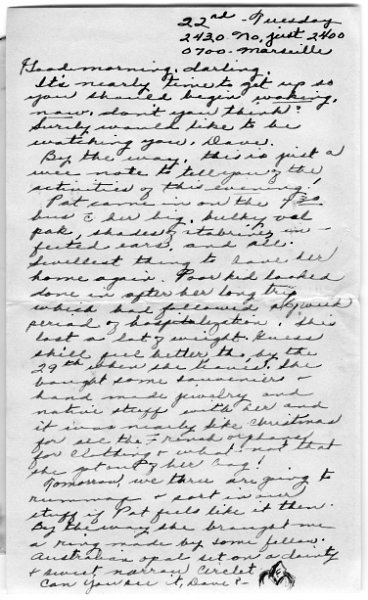 22nd - Tuesday
2430 - No, just 2400
0700 - Marseille
Good morning, darling.
It's nearly time to get up so
you should begin waking,
now, don't you think?
Surely would like to be
watching you, Dave.
By the way, this is just a
wee note to tell you of the
activities of this evening!
Pat came in on the 730
bus & her big, bulky val
pak, shades of
fected ears, and all.
Swellest thing to have her
home again. Poor kid looked
done in after her long trip
which had followed a week
period of hospitalization. She
lost a lot of weight. Guess
she'll feel better, tho, by the
29th when she leaves. She
bought some souvenirs &
hand made jewelry and
native stuff with her and
it was nearly like Christmas
for sec the French orphans
for clothing & what not that
she got out of her bag!
Tomorrow, we three are going to
rummage & sort in our
stuff if Pat feels like it then.
By the way she brought me
a ring made by some fellow.
Australian opal set on a dainty
& sweet narrow circlet
Can you see it, Dave? -